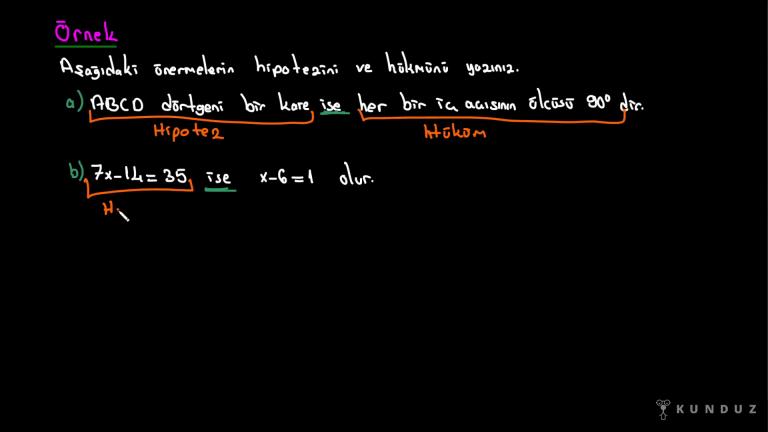 Örnek
Aşağıdaki önermelerin hipotezini ve hükmünü yazınız.
a) ABCD dörtgeni bir kare ise her bir iç açısının ölçüsü 90° dir.
Hipotez Hüküm
b) 7x-14=35 ise x-6=1 olur.
H
KUNDUZ